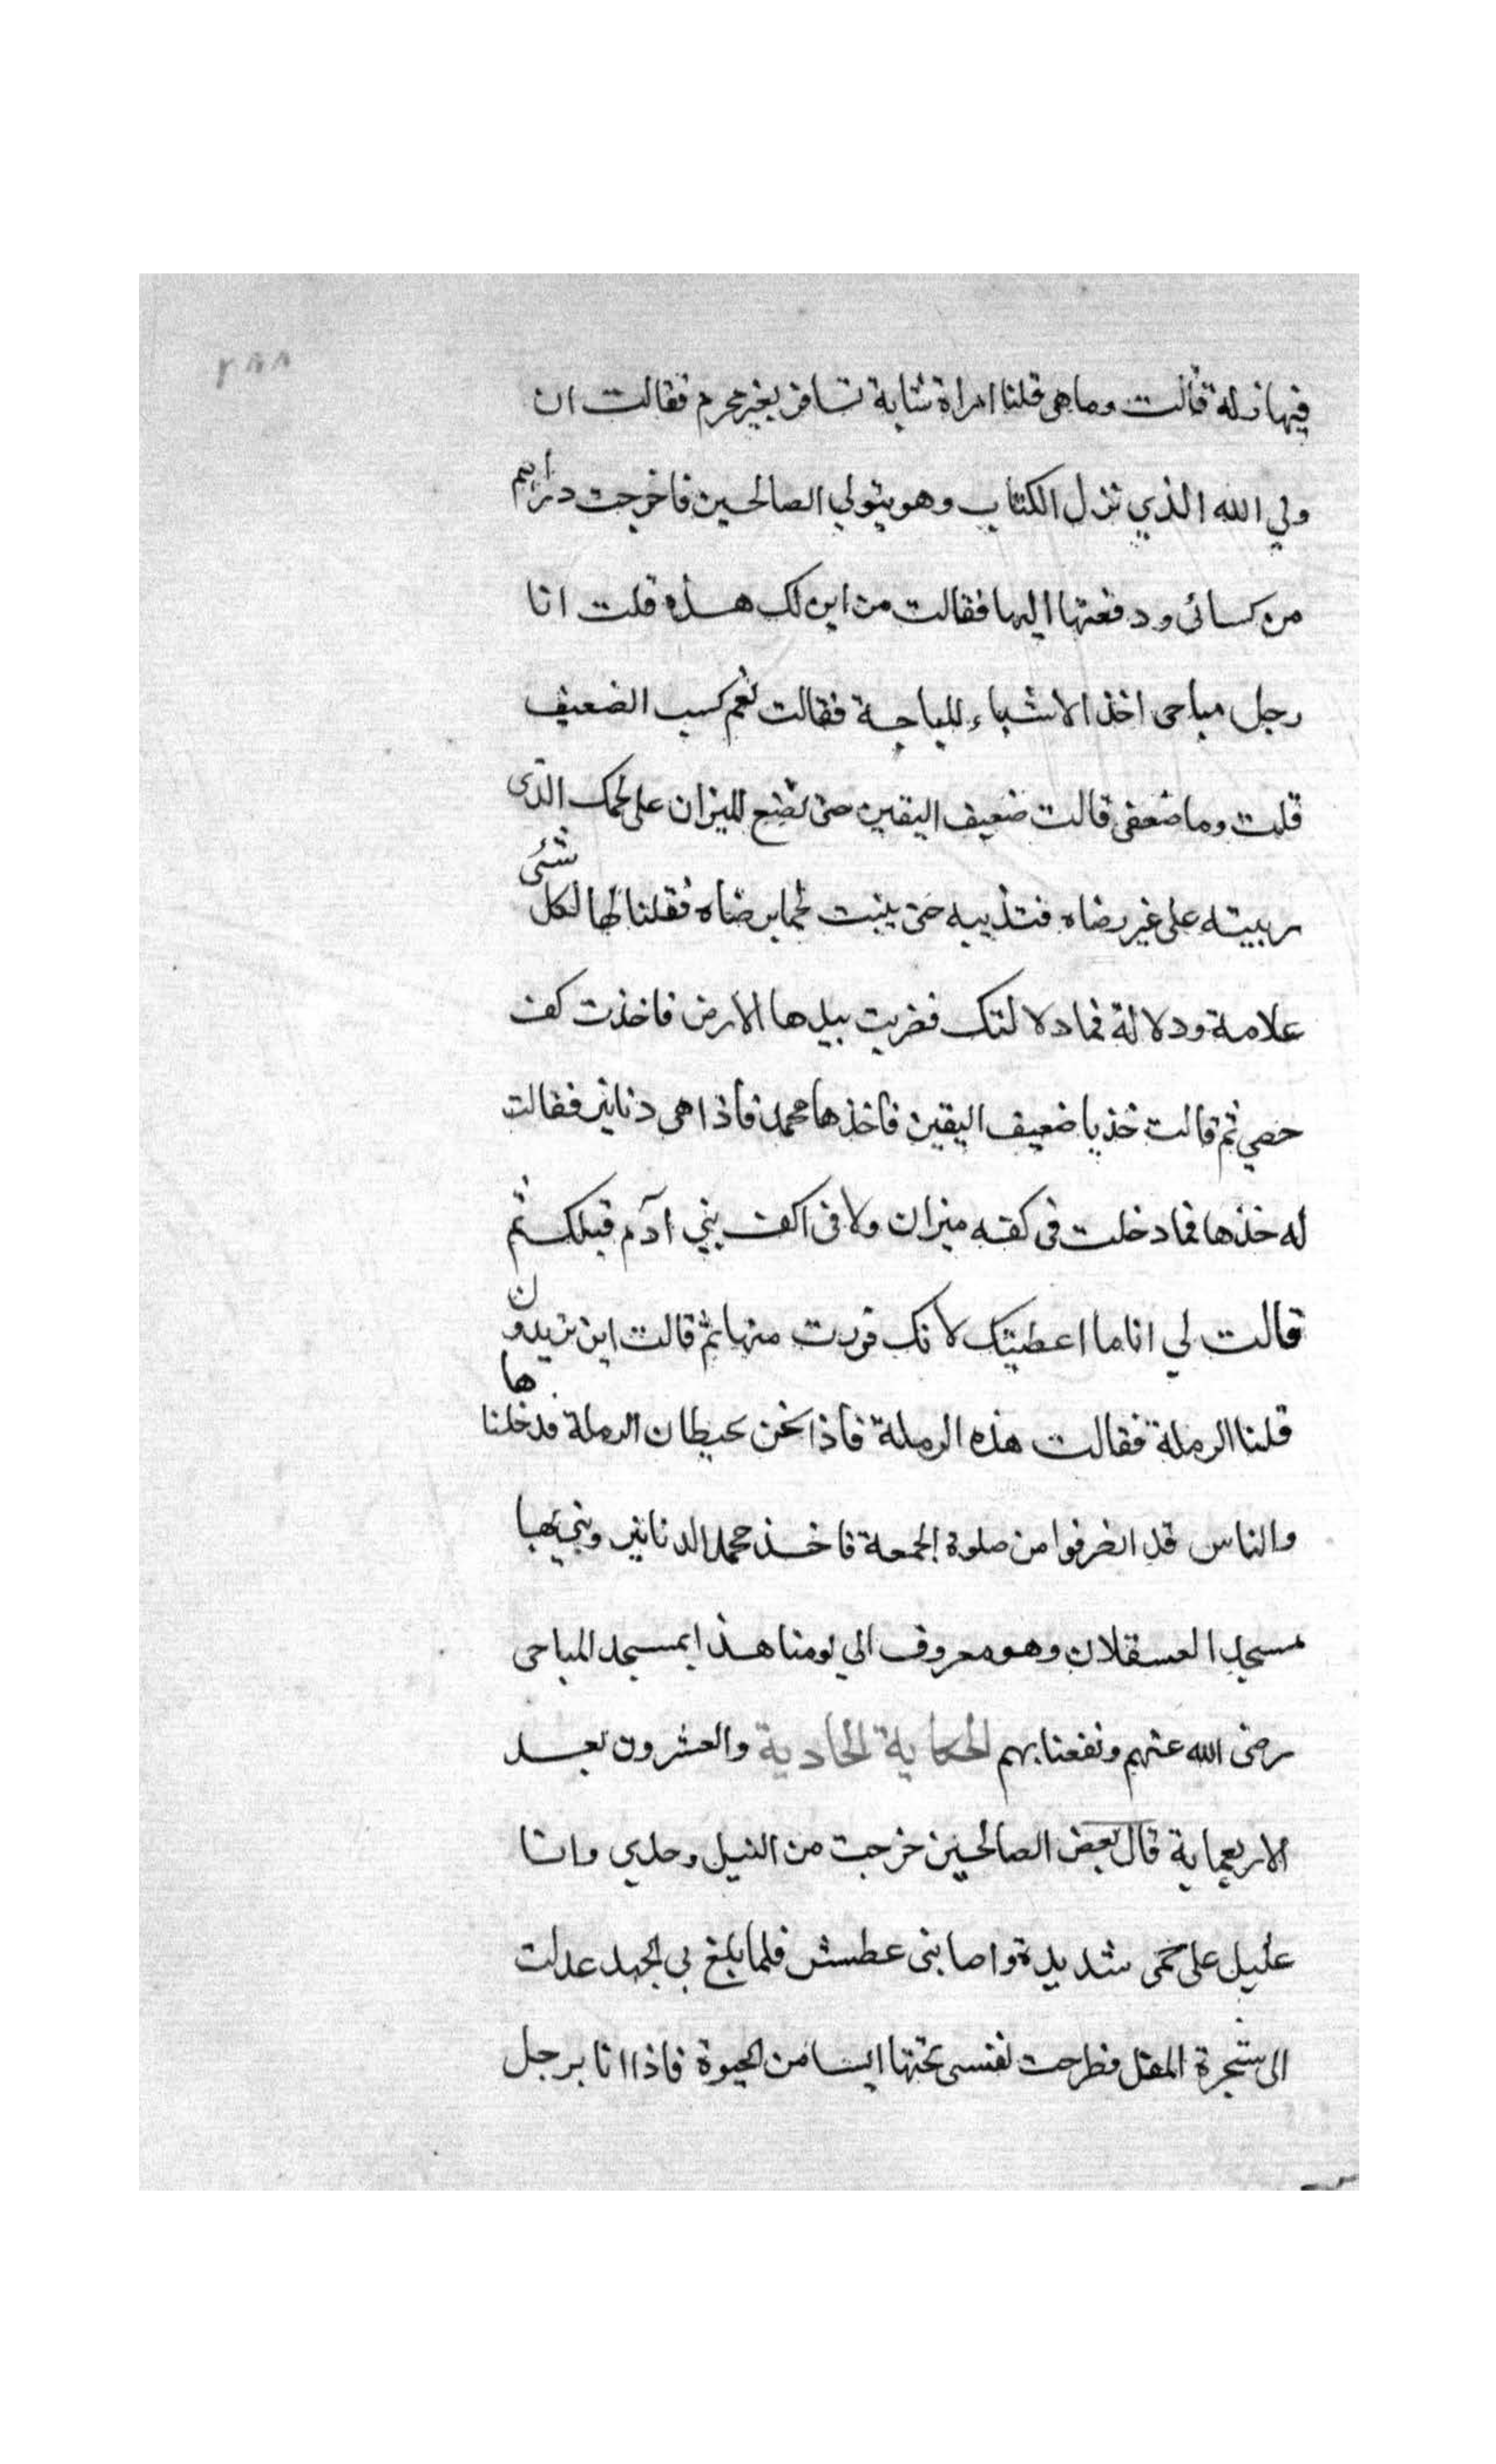 ٢٨٨
فيها زلة قالت وما هي قلنا امراة شابة تسافر بغير محرم فقالت ان
ولي الله الذي نزل الكتاب وهو يتولي الصالحين فاخرجت دراهم
من كسائي ودفعتها اليها فقالت من اين لك هذه قلت انا
رجل مباحى اخذ الاشياء المباحة فقالت نعم كسب الضعيف
قلت وما ضعفى قالت ضعيف اليقين حتى تضع الميزان على لحمك الذى
ربيته على غير رضاه فتذيبه حتى ينبت لحما برضاه فقلنا لها لكل شئى
علامة ودلالة فما دلالتك فضربت بيدها الارض فاخذت كف
حصي ثم قالت خذ يا ضعيف اليقين فاخذها محمد فاذا هى دنانير فقالت
له خذها فما دخلت فى كفه ميزان ولا فى اكف بني آدم قبلك ثم
قالت لي انا ما اعطيتك لانك فررت منها ثم قالت اين تريدون
قلنا الرملة فقالت هذه الرملة فاذا نحن بحيطان الرملة فدخلناها
والناس قد انصرفوا من صلوة الجمعة فاخذ محمد الدنانير وبني بها
مسجد العسقلان وهو معروف الي يومنا هذا بمسجد المباحى
رضى الله عنهم ونفعنا بهم الحكاية الحادية والعشرون بعد
الاربعماية قال بعض الصالحين خرجت من النيل وحدي وانا
عليل على حمى شديدة واصابنى عطش فلما بلغ بي الجهد عدلت
الى شجرة المقل فطرحت نفسى تحتها ايسا من الحيوة فاذا انا برجل